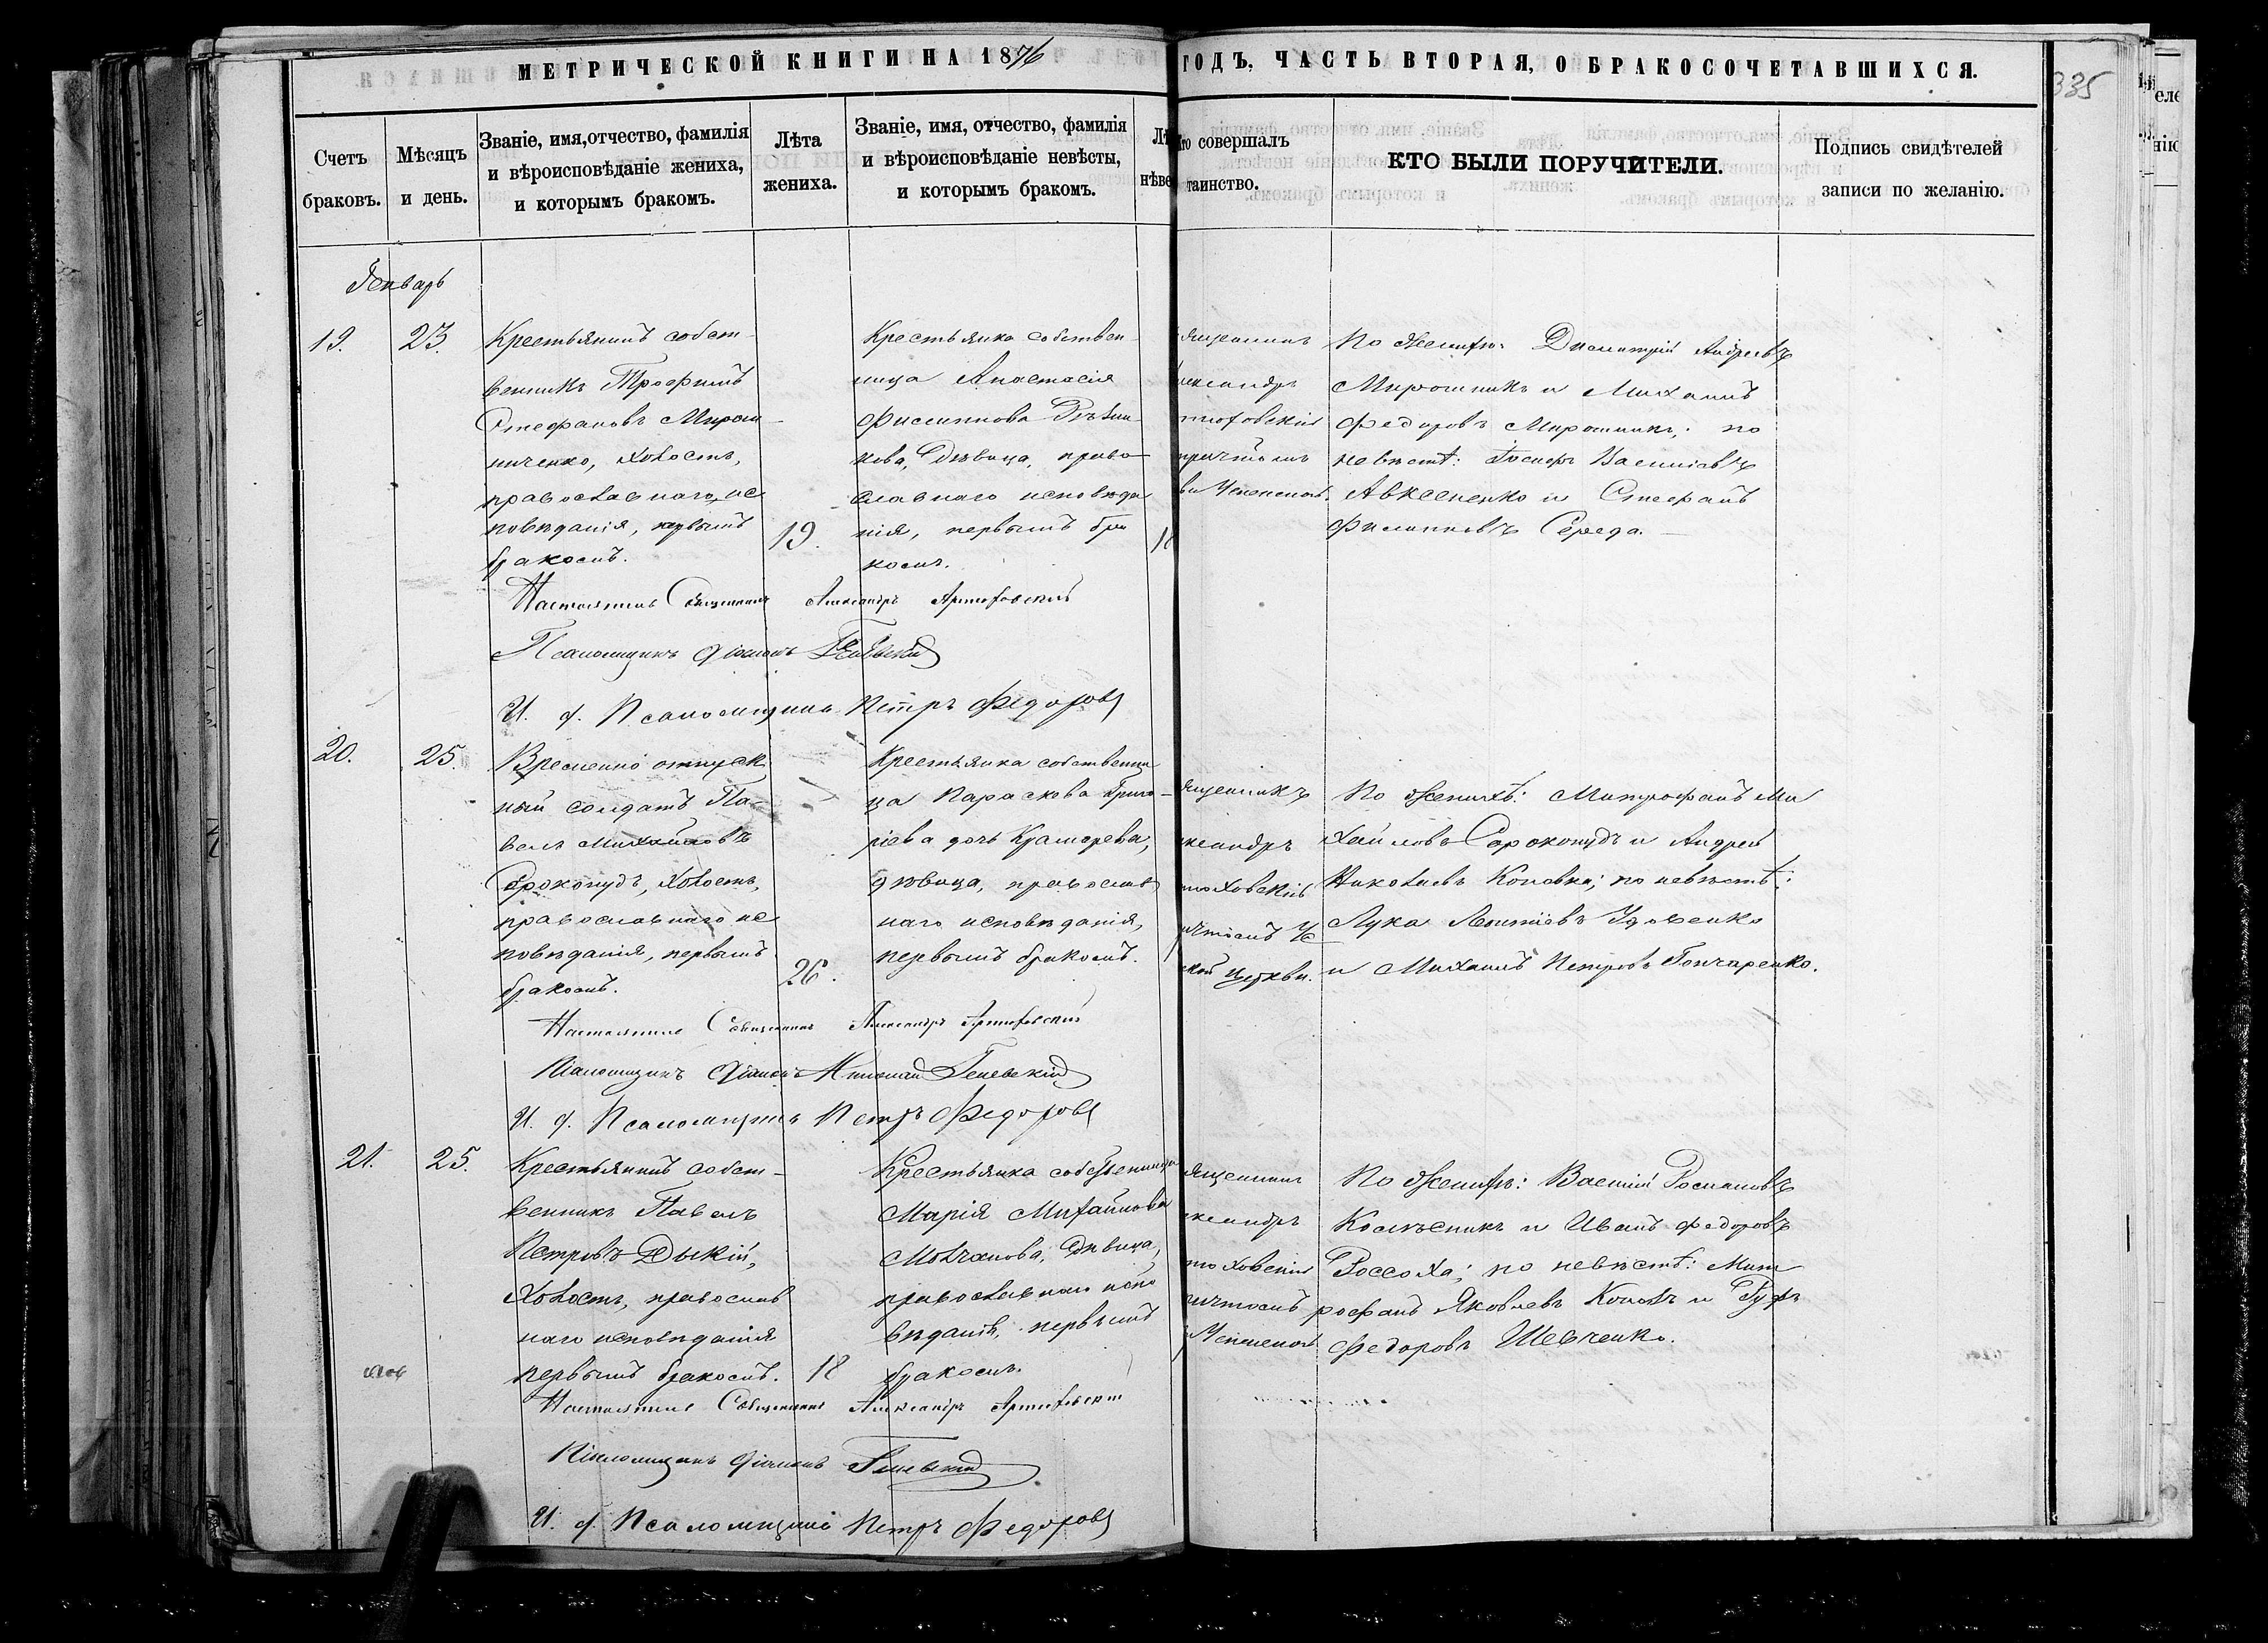 МЕТРИЧЕСКОЙ КНИГИ НА 1876
ГОДЪ, ЧАСТЬ ВТОРАЯ, О БРАКОСОЧЕТАВШИХСЯ.
335
Счетъ
браковъ.
Мѣсяцъ
и день.
Званіе, имя, отчество, фамилія
и вѣроисповѣданіе жениха,
и которымъ бракомъ.
Лѣта
жениха.
Званіе, имя, отчество, фамилія
и вѣроисповѣданіе невѣсты,
и которымъ бракомъ.
Лѣ
нѣве
то совершалъ
таинство.
КТО БЫЛИ ПОРУЧИТЕЛИ.
Подпись свидѣтелей
записи по желанію.
Генварь
19.
23.
Крестьянинъ собст-
венникъ Трофимъ
Стефановъ Мирош-
ниченко, холостъ,
православнаго ис
повѣданія, первымъ
бракомъ.
19.
Крестьянка собствен-
ница Анастасія
Филиппова
кова, дѣвица, право-
славнаго исповѣда
нія, первымъ бра
комъ.
18
ященникъ
лександръ
тюховскій
причтомъ
ви Успенской
По женихѣ: Димитрій Андреевъ
Мирошникъ и Михаилъ
Федоровъ Мирошникъ; по
невѣстѣ: Іосифъ Васильевъ
Авксененко и Стефанъ
Филипповъ Середа.
Настоятель Священникъ Александръ Артюховскій
Псаломщикъ Діаконъ Гіевскій
И. д. Псаломщика Петръ Федоровъ
20.
25.
Временно отпуск
ный солдатъ Па-
велъ Михайловъ
Сорокопудъ, холостъ,
православнаго ис
повѣданія, первымъ
бракомъ.
26.
Крестьянка собственни
ца Параскева Григо-
ріева дочь Крамарева,
дѣвица, православ
наго исповѣданія,
первымъ бракомъ.
ященникъ
лександръ
тюховскій
ичтомъ Ус
ской церкви.
По женихѣ: Митрофанъ Ми
хайловъ Сорокопудъ и Андрей
Николаевъ Коновка; по невѣстѣ:
Лука Леонтіевъ Удовенко
и Михаилъ Петровъ Гончаренко.
Настоятель Священникъ Александръ Артюховскій
Псаломщикъ Діаконъ Николай Гіевскій
И. д. Псаломщика Петръ Федоровъ
21.
25.
Крестьянинъ собст-
венникъ Павелъ
Петровъ Дыкій,
холостъ, православ
наго исповѣданія
первымъ бракомъ.
18
Крестьянка собственница
Марія Михайлова
Молчанова, дѣвица,
православнаго испо
вѣданія, первымъ
бракомъ.
ященникъ
лександръ
тюховскій
ичтомъ
Успенской
По женихѣ: Василій Романовъ
Колѣсникъ и Иванъ Федоровъ
Россоха; по невѣстѣ: Мит
рофанъ Яковлевъ и
Федоровъ Шевченко.
Настоятель Священникъ Александръ Артюховскій
Псаломщикъ Діаконъ Гіевскій
И. д. Псаломщика Петръ Федоровъ